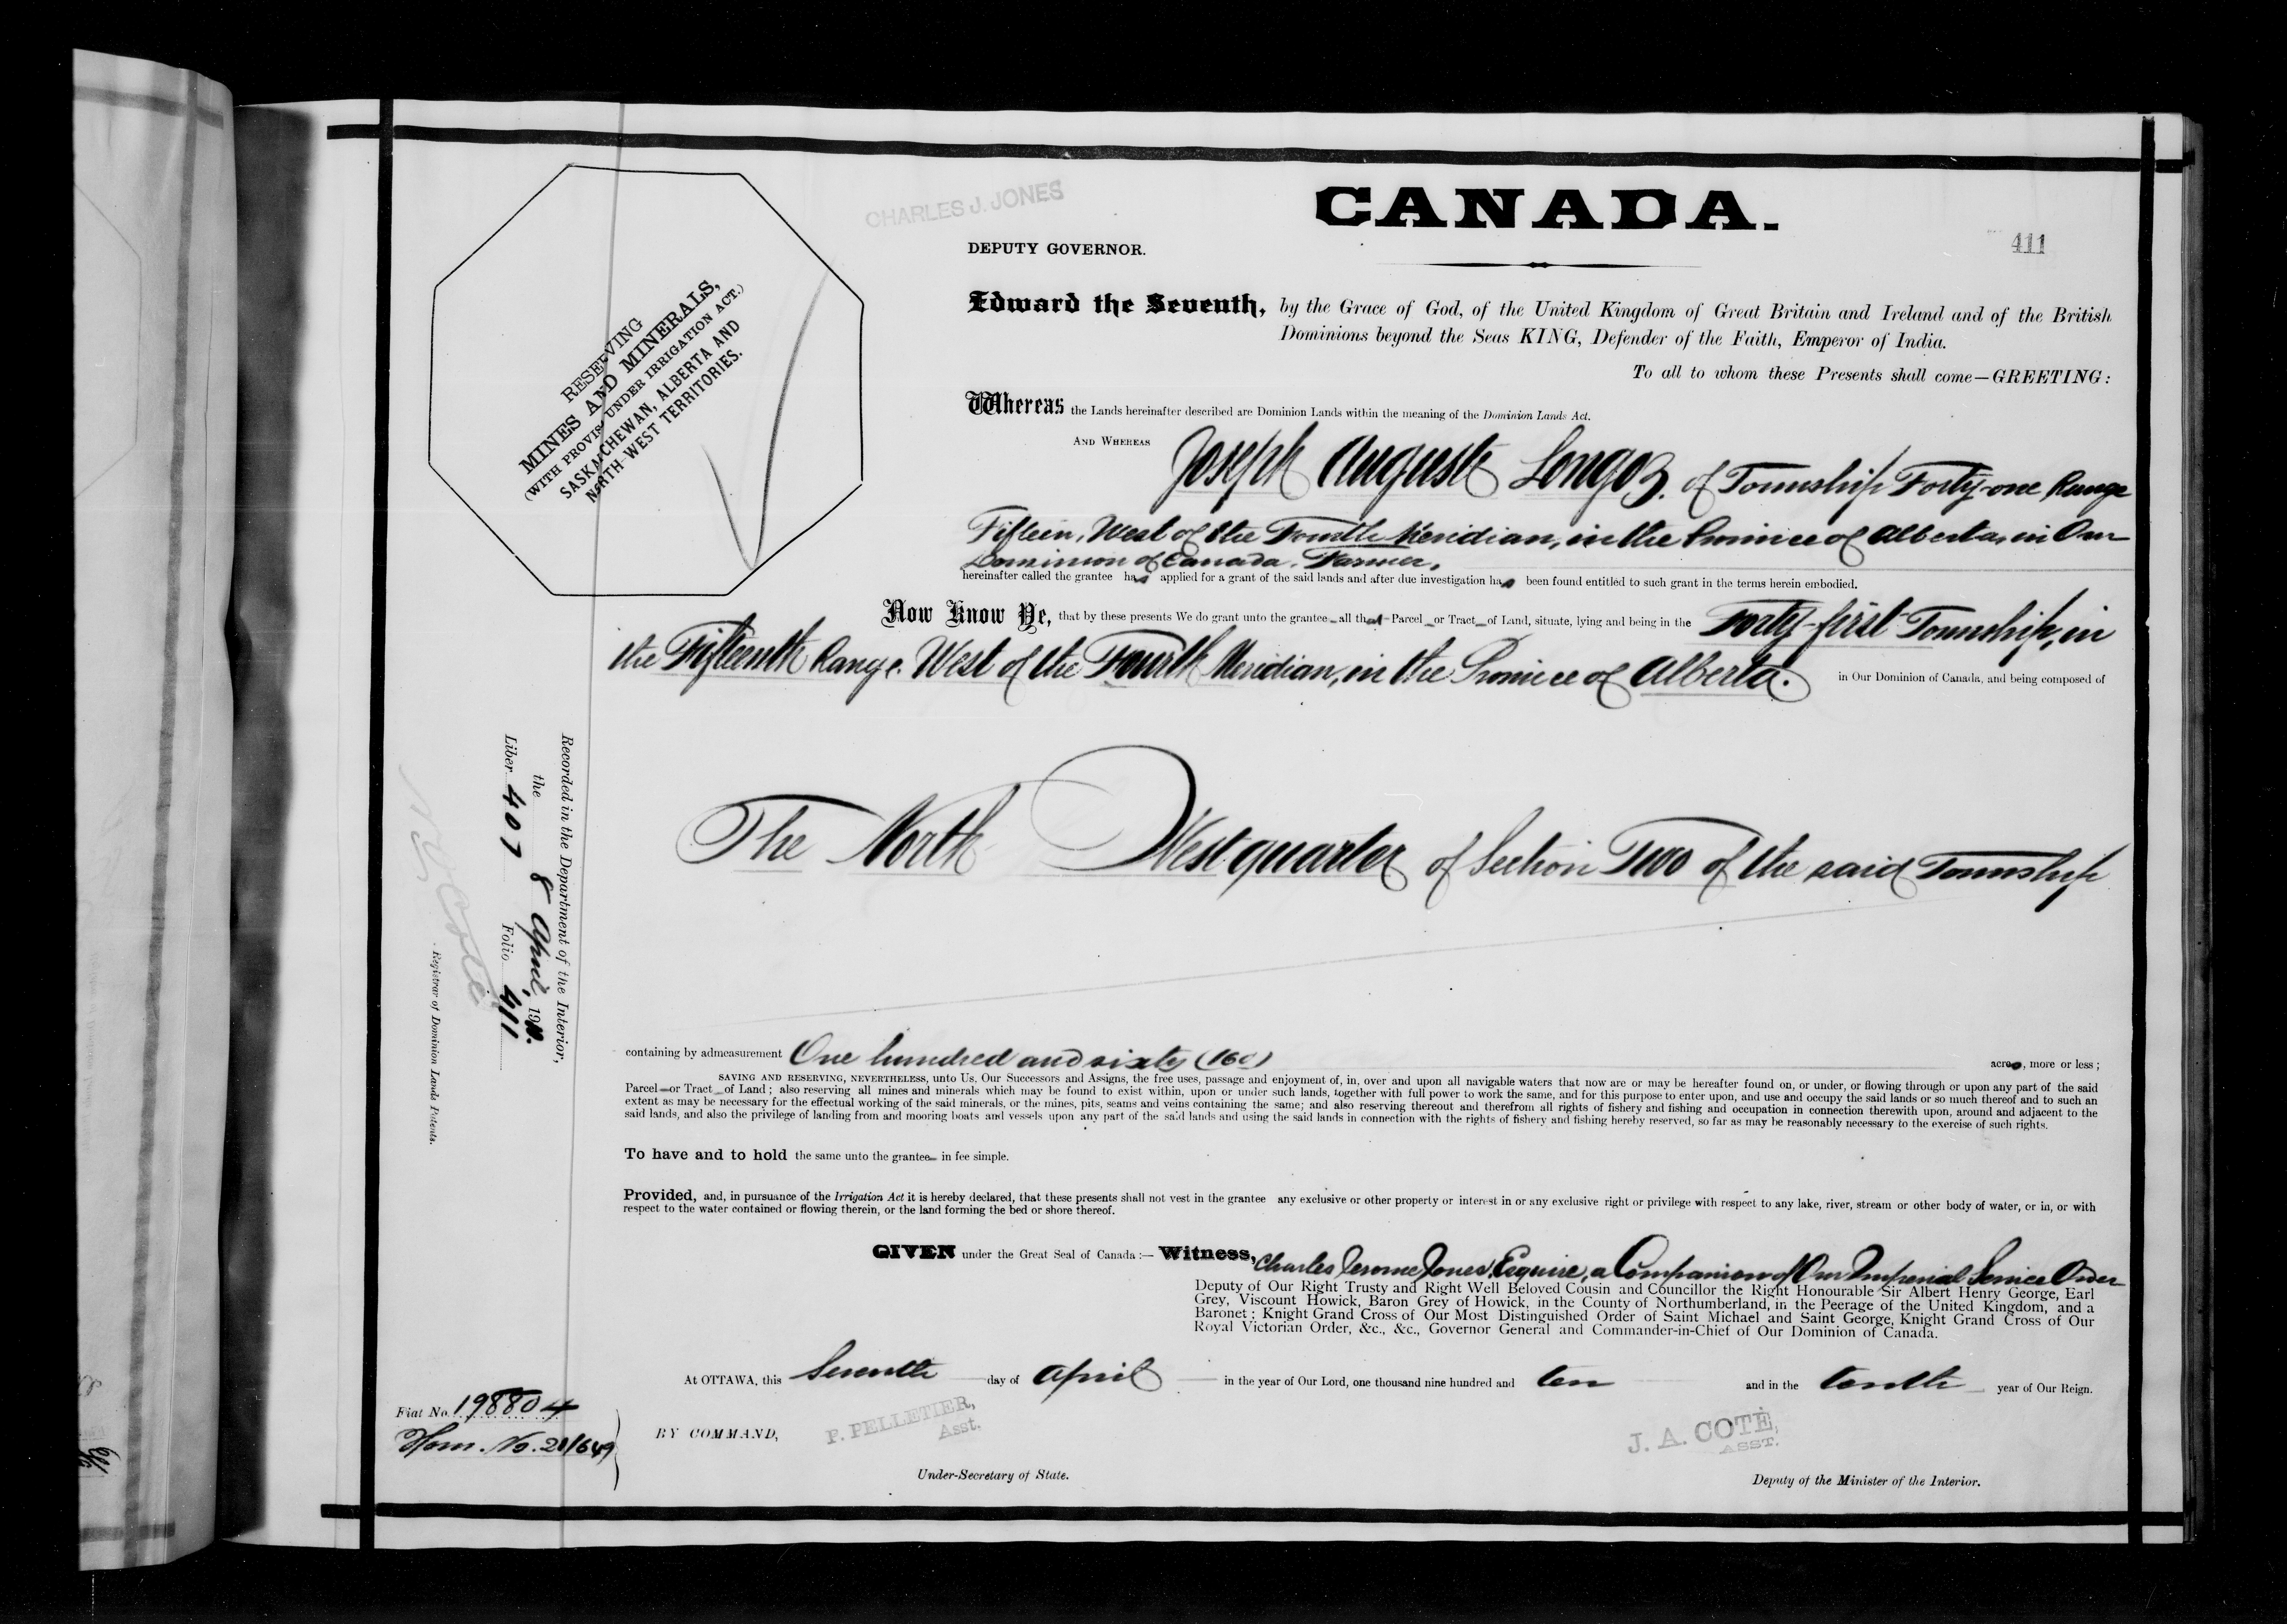 CHARLES J. JONES
CANADA.
DEPUTY GOVERNOR.
411
Edward the Seventh, by the Grace of God, of the United Kingdom of Great Britain and Ireland and of the British
Dominions beyond the Seas KING, Defender of the Faith, Emperor of India.
To all to whom these Presents shall come—GREETING:
RESERVING
MINES AND MINERALS,
(WITH PROVIS. UNDER IRRIGATION ACT.)
SASKATCHEWAN, ALBERTA AND
NORTH-WEST TERRITORIES.
Whereas the Lands hereinafter described are Dominion Lands within the meaning of the Dominion Lands Act.
AND WHEREAS Joseph Auguste Longoz. of Township Forty-one Range
Fifteen, West of the Fourth Meridian, in the Province of Alberta, in Our
Dominion of Canada, Farmer,
hereinafter called the grantee has applied for a grant of the said lands and after due investigation has been found entitled to such grant in the terms herein embodied.
Now Know Ye, that by these presents We do grant unto the grantee all that Parcel or Tract of Land, situate, lying and being in the Forty-first Township, in
the Fifteenth Range. West of the Fourth Meridian, in the Province of Alberta. in Our Dominion of Canada, and being composed of
The North West quarter of Section Two of the said Township
Recorded in the Department of the Interior,
the 8 April, 1910.
Liber 407 Folio 411
Registrar of Dominion Lands Patents.
containing by admeasurement One hundred and sixty (160) acres, more or less;
SAVING AND RESERVING, NEVERTHELESS, unto Us, Our Successors and Assigns, the free uses, passage and enjoyment of, in, over and upon all navigable waters that now are or may be hereafter found on, or under, or flowing through or upon any part of the said
Parcel or Tract of Land; also reserving all mines and minerals which may be found to exist within, upon or under such lands, together with full power to work the same, and for this purpose to enter upon, and use and occupy the said lands or so much thereof and to such an
extent as may be necessary for the effectual working of the said minerals, or the mines, pits, seams and veins containing the same; and also reserving thereout and therefrom all rights of fishery and fishing and occupation in connection therewith upon, around and adjacent to the
said lands, and also the privilege of landing from and mooring boats and vessels upon any part of the said lands and using the said lands in connection with the rights of fishery and fishing hereby reserved, so far as may be reasonably necessary to the exercise of such rights.
To have and to hold the same unto the grantee in fee simple.
Provided, and, in pursuance of the Irrigation Act it is hereby declared, that these presents shall not vest in the grantee any exclusive or other property or interest in or any exclusive right or privilege with respect to any lake, river, stream or other body of water, or in, or with
respect to the water contained or flowing therein, or the land forming the bed or shore thereof.
GIVEN under the Great Seal of Canada:— Witness, Charles Jerome Jones, Esquire, a Companion of Our Imperial Service Order
Deputy of Our Right Trusty and Right Well Beloved Cousin and Councillor the Right Honourable Sir Albert Henry George, Earl
Grey, Viscount Howick, Baron Grey of Howick, in the County of Northumberland, in the Peerage of the United Kingdom, and a
Baronet; Knight Grand Cross of Our Most Distinguished Order of Saint Michael and Saint George, Knight Grand Cross of Our
Royal Victorian Order, &c., &c., Governor General and Commander-in-Chief of Our Dominion of Canada.
At OTTAWA, this Seventh day of April in the year of Our Lord, one thousand nine hundred and ten and in the tenth year of Our Reign.
Fiat No. 198804
Hom. No. 201649
BY COMMAND,
P. PELLETIER,
Asst.
Under-Secretary of State.
J. A. COTÉ,
ASST.
Deputy of the Minister of the Interior.